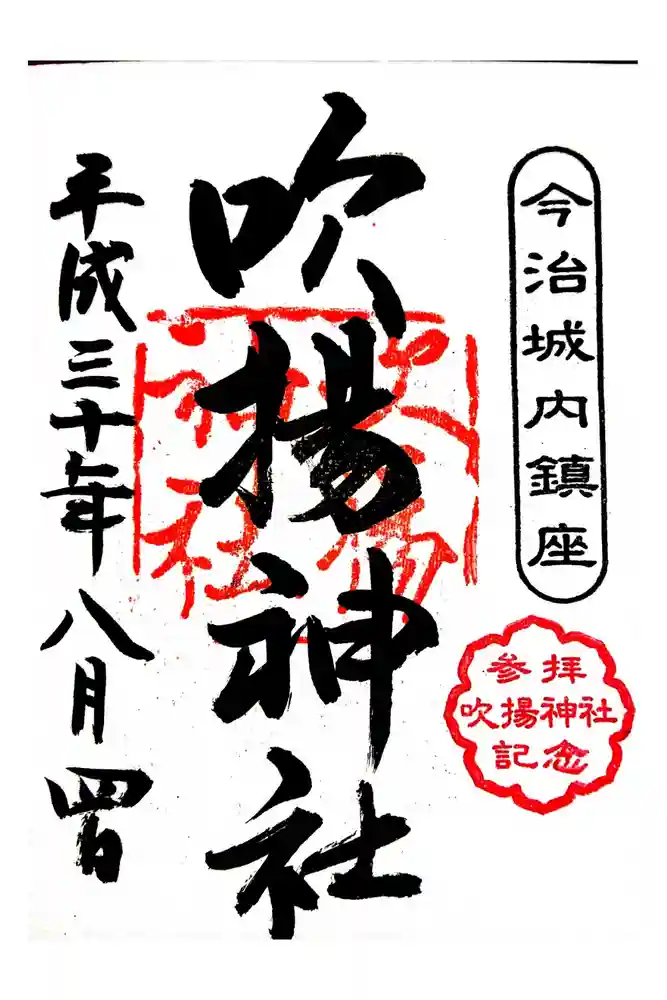 今治城内鎮座
参拝
吹揚神社
記念
吹揚神社
吹揚
神社
平成三十年八月四日